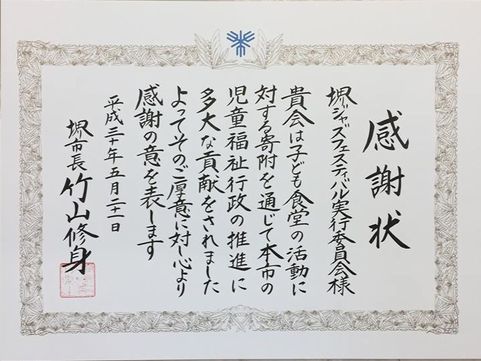 感謝状
堺ジャズフェスティバル実行委員会様
貴会は子ども食堂の活動に
対する寄附を通じて本市の
児童福祉行政の推進に
多大な貢献をされました
よってそのご厚意に対し心より
感謝の意を表します
平成三十年五月二十一日
堺市長 竹山修身